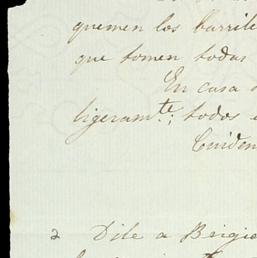 quemen los barrile
que tomen todas
En casa
ligeram.te; todos
Cuiden
2 Dile a Brigi